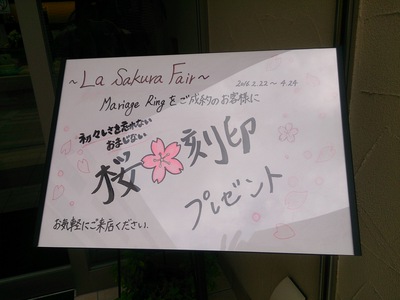 ~La Sakura Fair~
2016.2.22~4.24
Mariage Ringをご成約のお客様に
初々しさを忘れない
おまじない
桜刻印
プレゼント
お気軽にご来店ください.